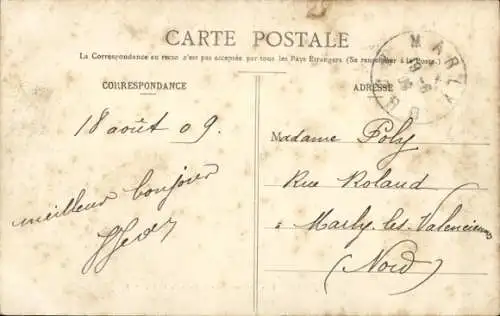 CARTE POSTALE
La Correspondance au recto n'est pas acceptée par tous les Pays Etrangers (Se renseigner à la Poste.)
CORRESPONDANCE
ADRESSE
MARLY
NORD
18 août 09.
meilleur bonjour
Madame Poly
Rue Roland
à Marly-les-Valenciennes
(Nord)